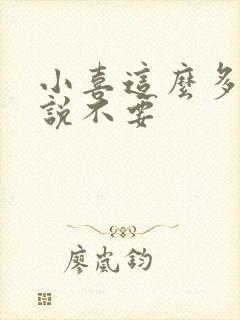 小喜這麼多
說不要
廖嵐鈞